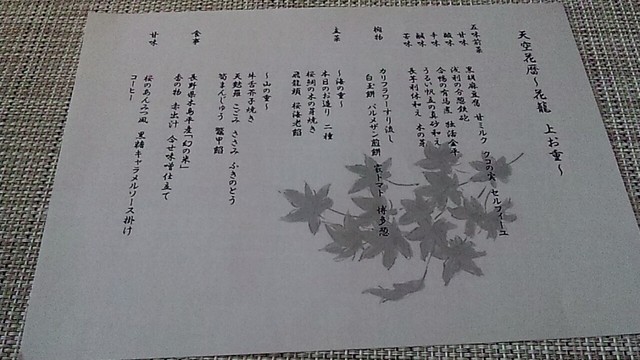 天空花暦～花籠 上お重～
五味前菜
甘味 黒胡麻豆腐 甘ミルク クコの実 セルフィーユ
酸味 浅利の分葱鉄砲
辛味 合鴨の有馬煮 牡蠣金平
鹹味 うるい独活の真砂和え
苦味 長芋利休和え 木の芽
椀物 カリフラワーすり流し
白玉餅 パルメザン煎餅 富トマト 博多葱
主菜 ～海の重～
本日のお造り 二種
桜鯛の木の芽焼き
飛龍頭 桜海老餡
～山の重～
牛舌茶子焼き
天麩羅 こごみ ささみ ふきのとう
筍まんじゅう 鼈甲餡
食事 長野県木島平産「幻の米」
香の物 赤出汁 合せ味噌仕立て
甘味 桜のあんみつ風 黒糖キャラメルソース掛け
コーヒー